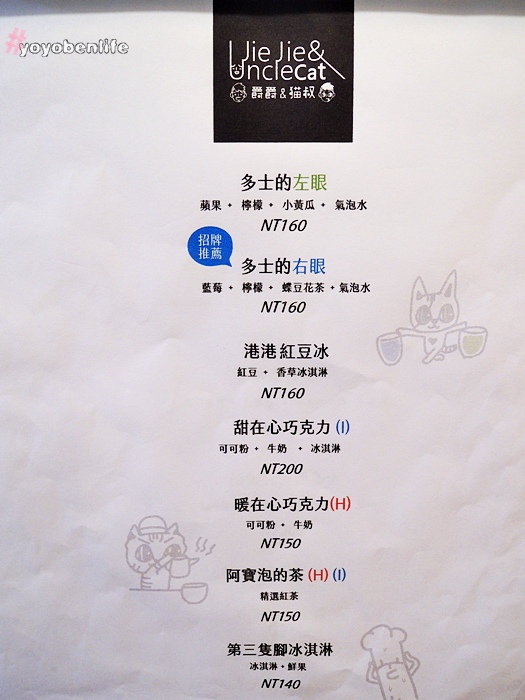 #yoyobenlife
Jie Jie &
UncleCat
爵爵&貓叔
多士的左眼
蘋果 + 檸檬 + 小黃瓜 + 氣泡水
NT160
招牌
推薦
多士的右眼
藍莓 + 檸檬 + 蝶豆花茶 + 氣泡水
NT160
港港紅豆冰
紅豆 + 香草冰淇淋
NT160
甜在心巧克力 (I)
可可粉 + 牛奶 + 冰淇淋
NT200
暖在心巧克力(H)
可可粉 + 牛奶
NT150
阿寶泡的茶 (H) (I)
精選紅茶
NT150
第三隻腳冰淇淋
冰淇淋+鮮果
NT140